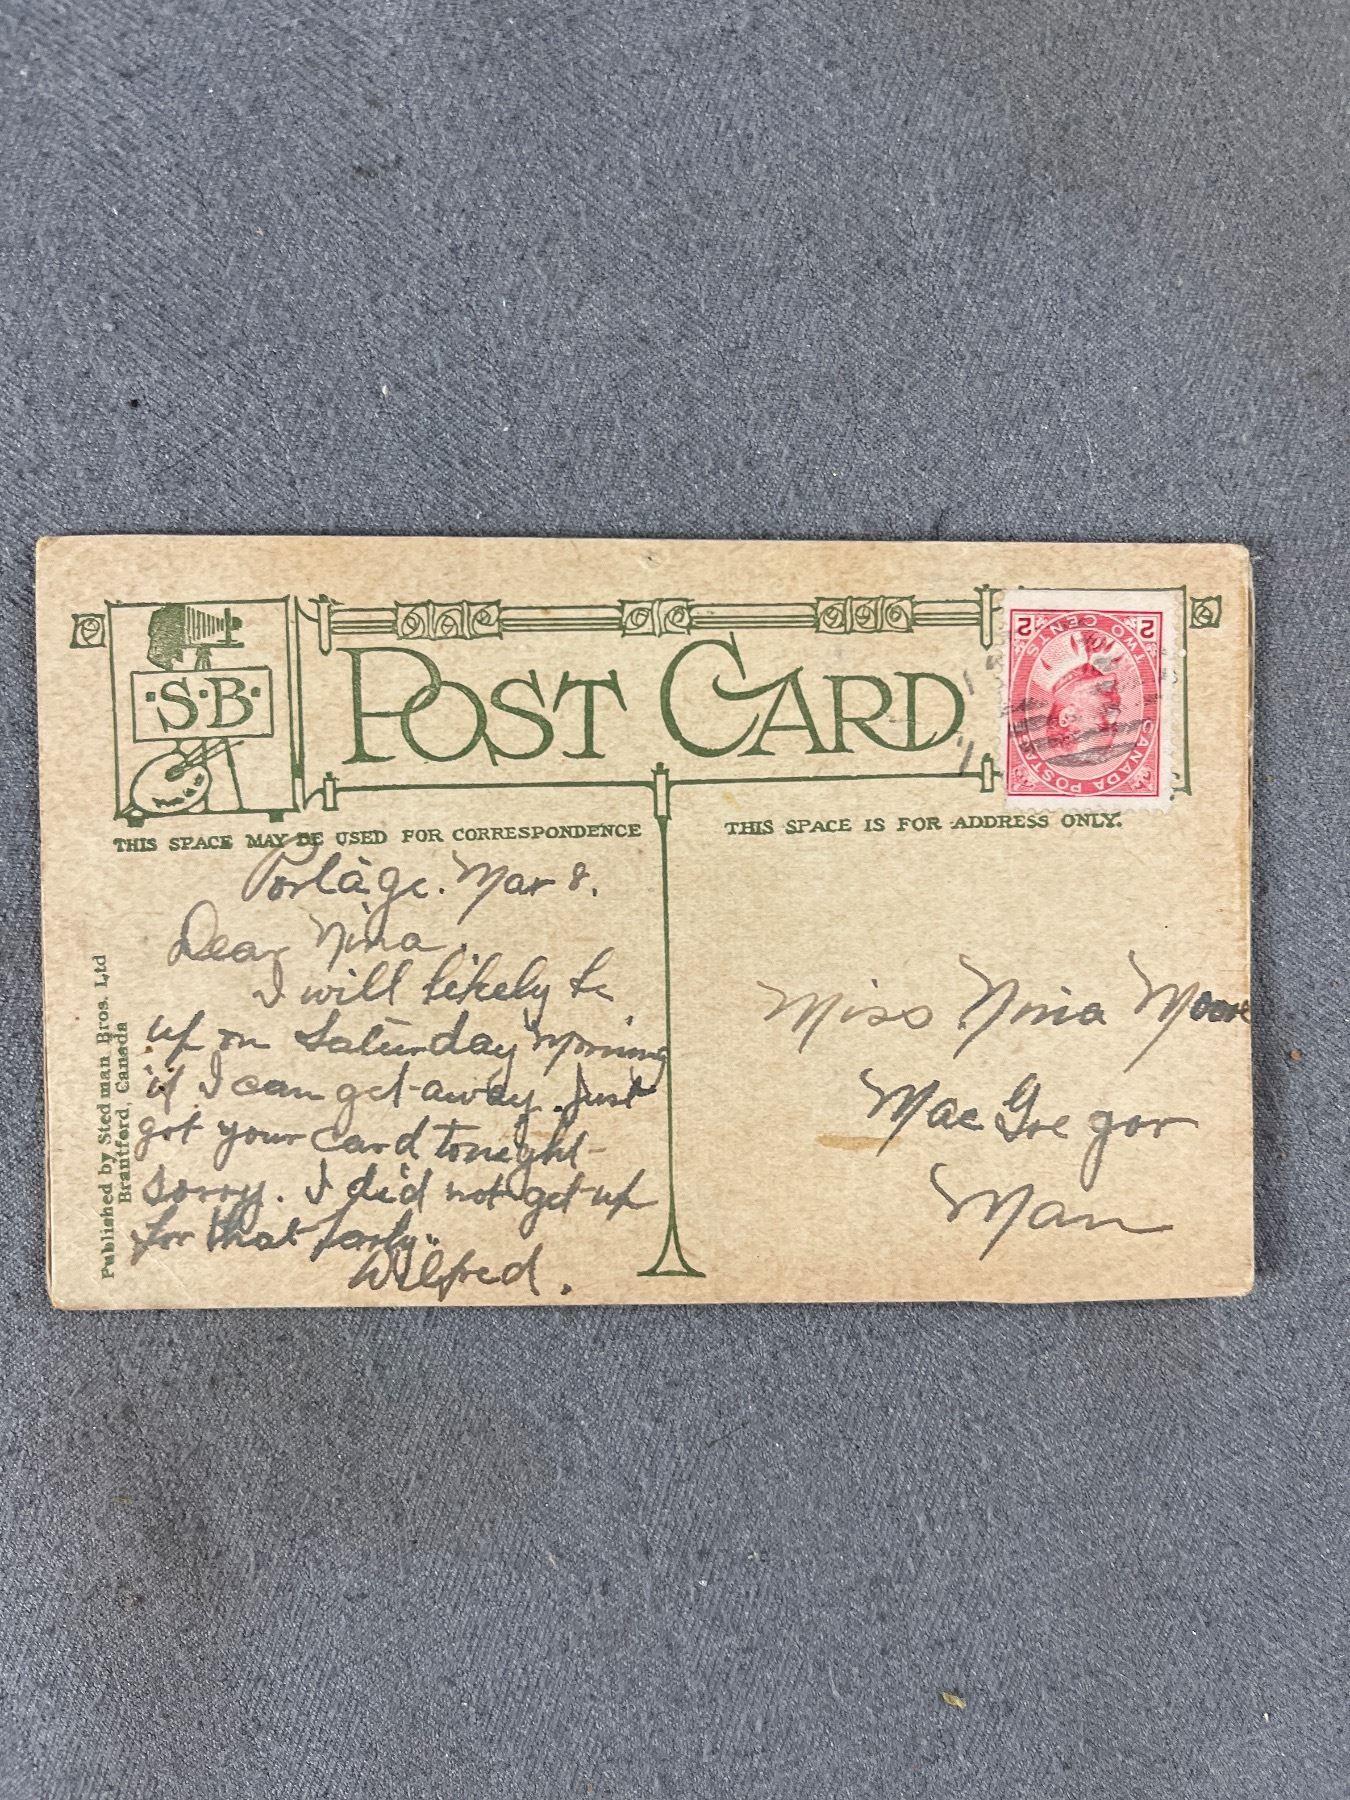 ·S·B·
POST CARD
TWO CENTS
2 2
CANADA POSTAGE
THIS SPACE MAY BE USED FOR CORRESPONDENCE
THIS SPACE IS FOR ADDRESS ONLY.
Portage. Mar 8.
Dear Nina,
I will likely be
up on Saturday morning
if I can get away. Just
got your card tonight-
sorry. I did not get up
for that party..
Wilfred.
Miss Nina Moore
MacGregor
Man
Published by Stedman Bros. Ltd
Brantford, Canada